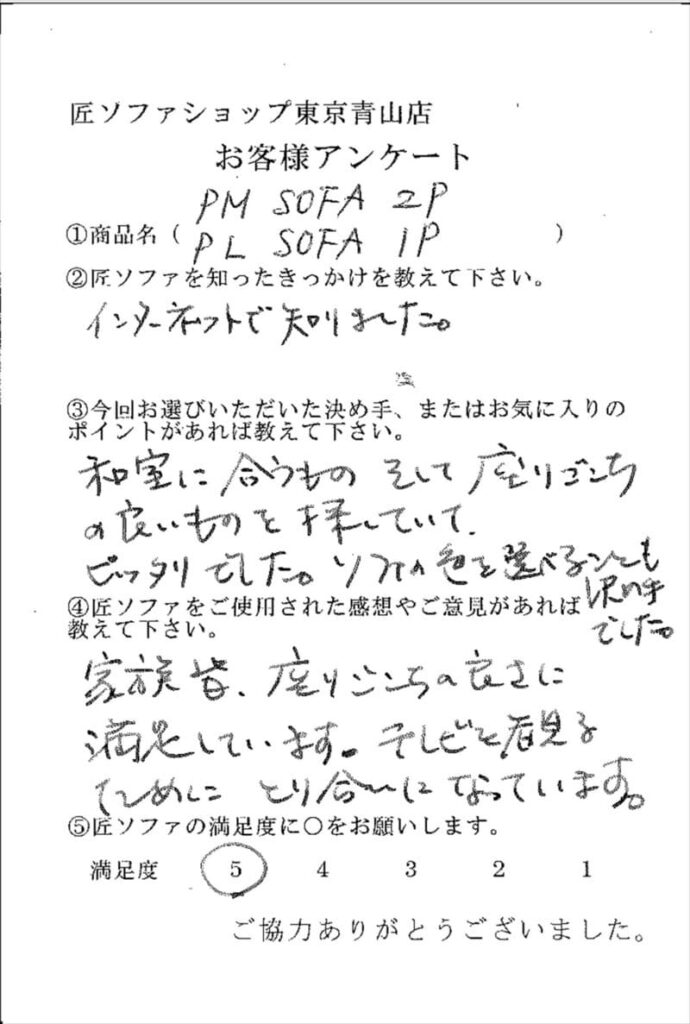 匠ソファショップ東京青山店
お客様アンケート
PM SOFA 2P
①商品名（ PL SOFA 1P ）
②匠ソファを知ったきっかけを教えて下さい。
インターネットで知りました。
③今回お選びいただいた決め手、またはお気に入りの
ポイントがあれば教えて下さい。
和室に合うもの そして 座りごこち
の良いものを探していて、
ピッタリでした。ソファの色を選べることも
決め手
でした。
④匠ソファをご使用された感想やご意見があれば
教えて下さい。
家族皆、座りごこちの良さに
満足しています。テレビを観る
ためにとり合いになっています。
⑤匠ソファの満足度に○をお願いします。
満足度 5 4 3 2 1
ご協力ありがとうございました。